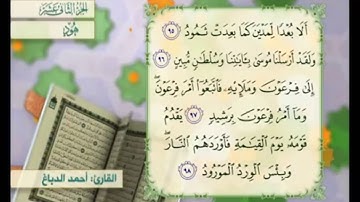 الجزء الثاني عشر
هُود
أَلَا بُعْدًا لِّمَدْيَنَ كَمَا بَعِدَتْ ثَمُودُ ٩٥
وَلَقَدْ أَرْسَلْنَا مُوسَىٰ بِـَٔايَـٰتِنَا وَسُلْطَـٰنٍ مُّبِينٍ ٩٦
إِلَىٰ فِرْعَوْنَ وَمَلَإِيْهِۦ فَٱتَّبَعُوٓا۟ أَمْرَ فِرْعَوْنَ
وَمَآ أَمْرُ فِرْعَوْنَ بِرَشِيدٍ ٩٧ يَقْدُمُ
قَوْمَهُۥ يَوْمَ ٱلْقِيَـٰمَةِ فَأَوْرَدَهُمُ ٱلنَّارَ
وَبِئْسَ ٱلْوِرْدُ ٱلْمَوْرُودُ ٩٨
القارئ: أحمد الدباغ